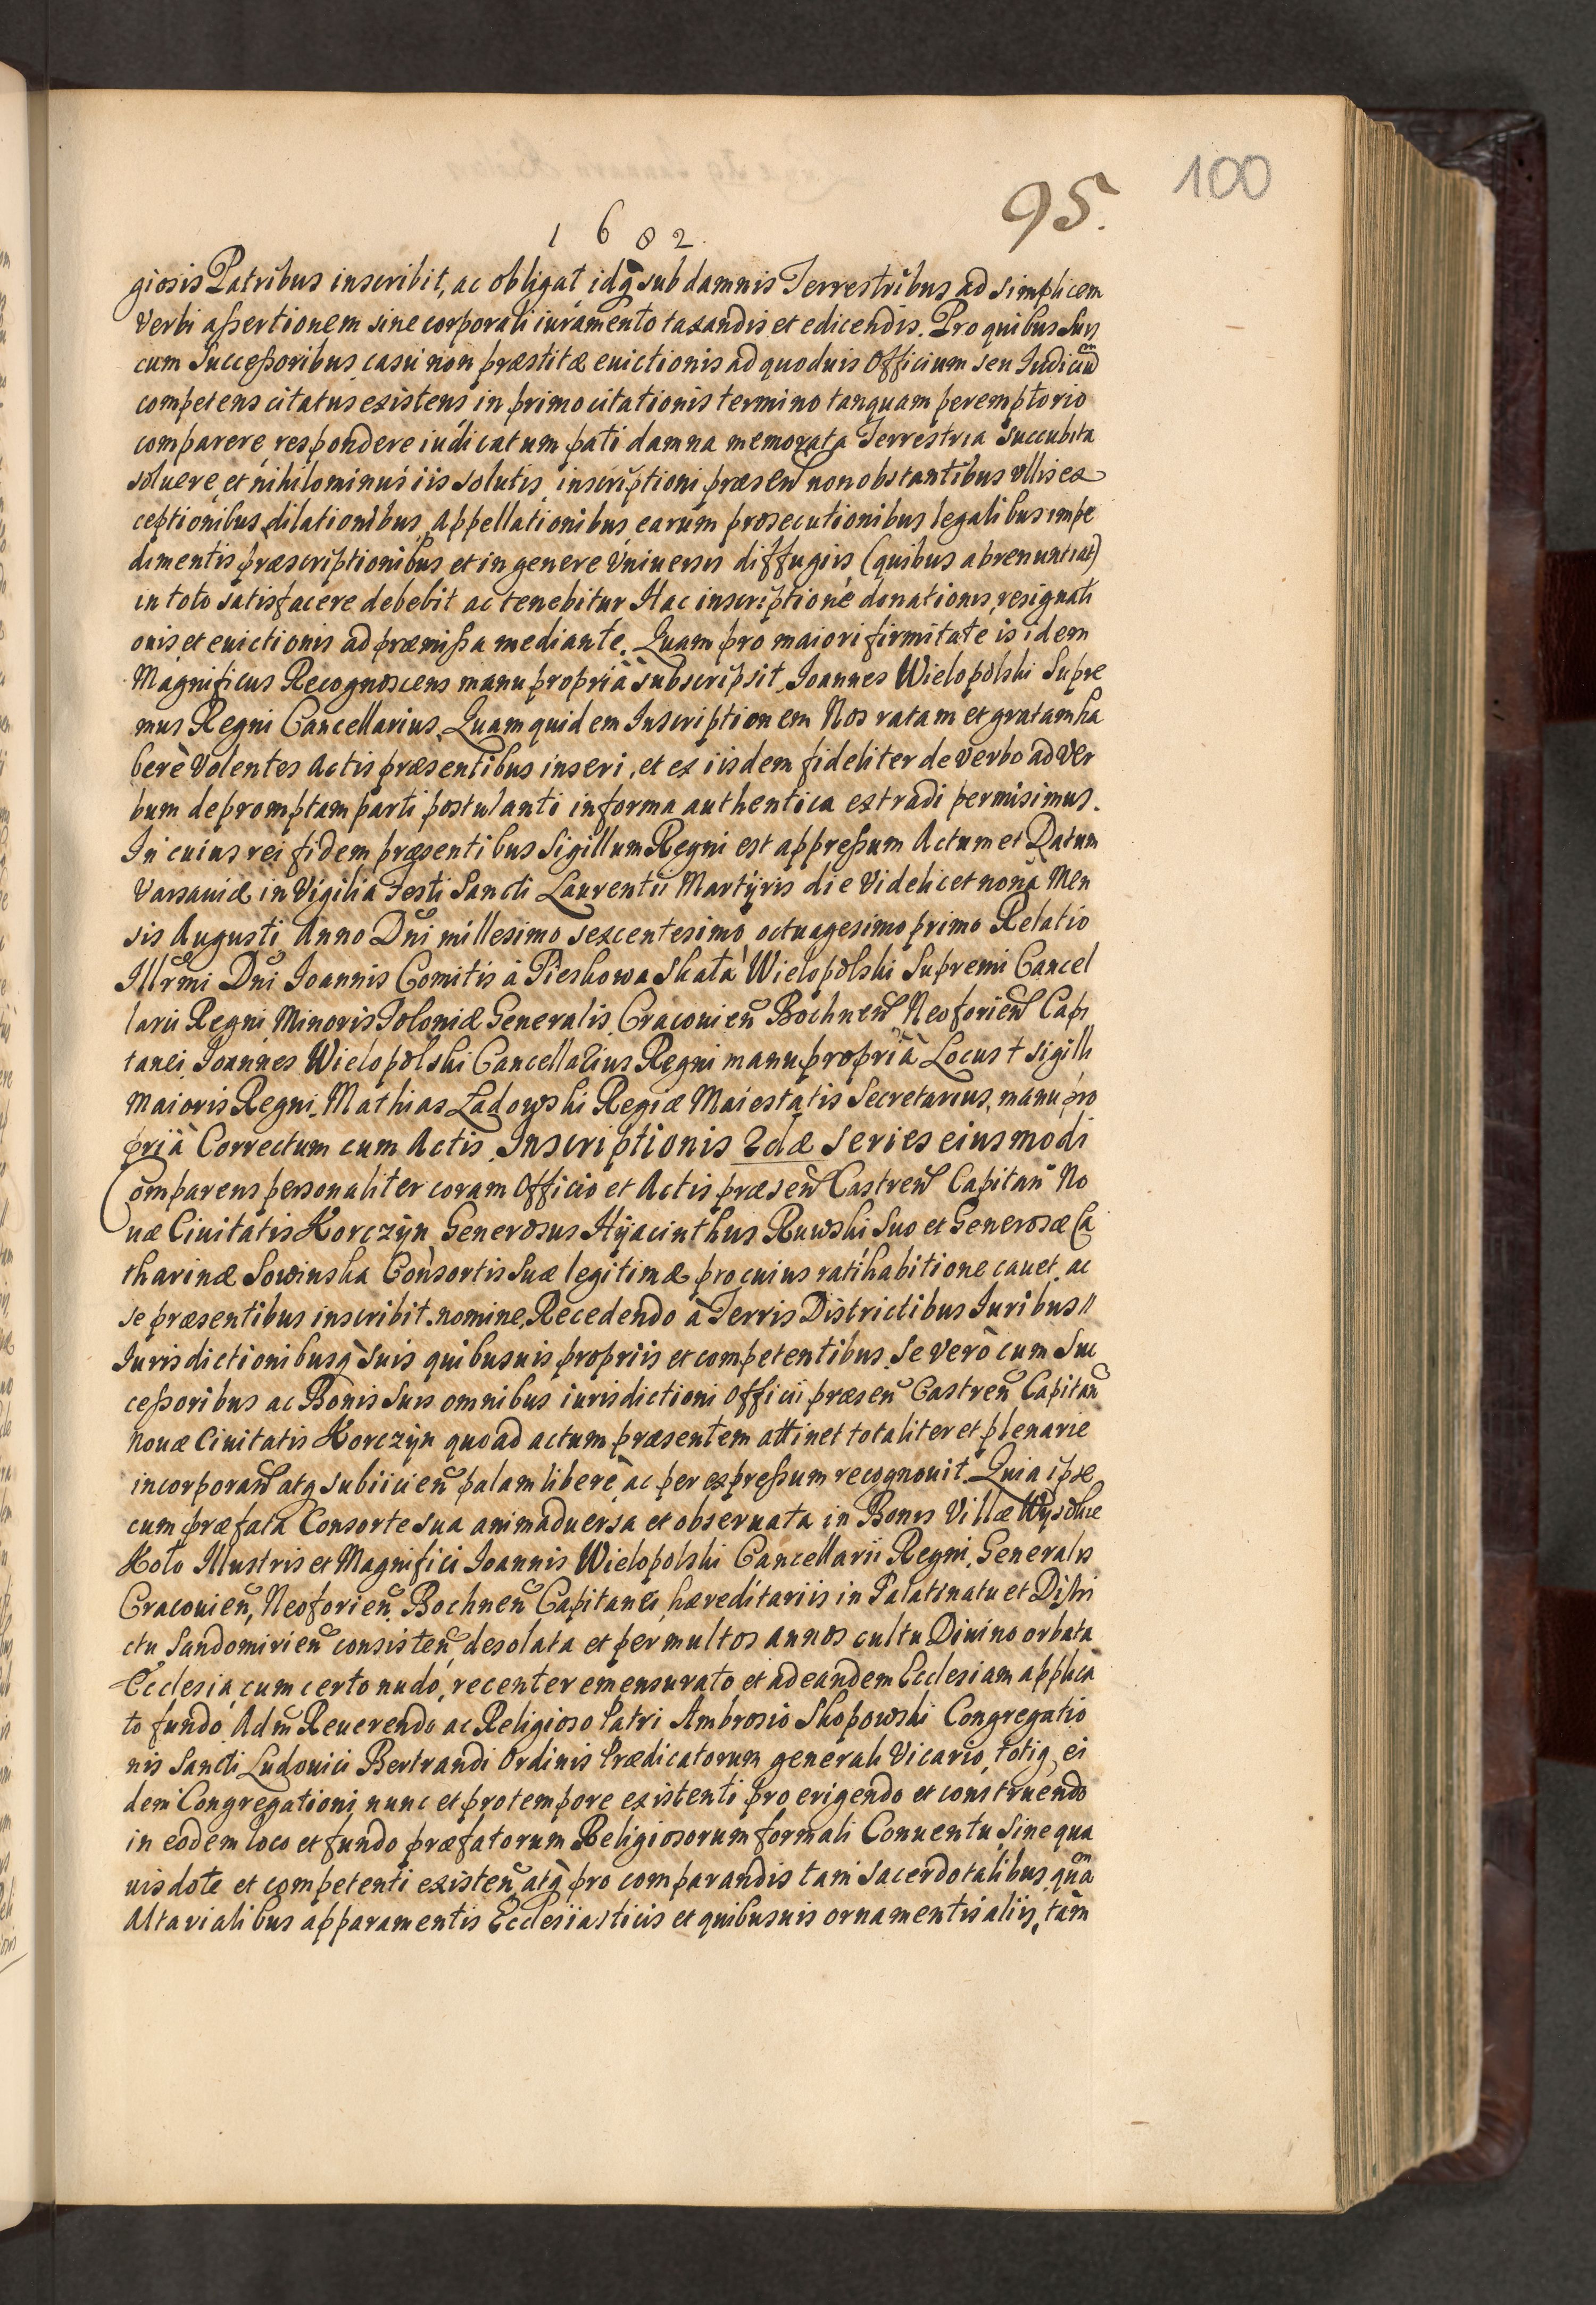 100
95.
1682.
giosis Patribus inscribit, ac obligat idq̀ sub damnis Terrestribus ad simplicem
Verbi assertionem sine corporali iuramento taxandis et edicendis. Pro quibus suis
cum Successoribus casu non præstitæ euictionis ad quoduis Officium seu Iudiciũ
competens citatus existens in primo citationis termino tanquam peremptorio
comparere, respondere iudicatum pati damna memorata Terrestria succubita
soluere, et nihilominus iis solutis, inscriptioni præseñ non obstantibus vllis ex
ceptionibus, dilationibus, Appellationibus, earum prosecutionibus legalibus impe
dimentis præscriptionibus et in genere Vniuersis diffugiis (quibus abrenuntiat)
in toto satisfacere debebit ac tenebitur Hac inscriptione donationis, resignati
onis et euictionis ad præmissa mediante. Quam pro maiori firmitate is idem
Magnificus Recognoscens manu propriâ subscripsit, Ioannes Wielopolski Supre
mus Regni Cancellarius. Quam quidem Inscriptionem Nos ratam et gratam ha
berè Volentes Actis præsentibus inseri, et ex iisdem fideliter de verbo ad ver
bum depromptam parti postulanti in forma authentica extradi permisimus.
In cuius rei fidem præsentibus Sigillum Regni est appressum Actum et Datum
Varsauiæ in Vigilia Festi Sancti Laurentii Martyris die Videlicet nona Men
sis Augusti Anno Dñi millesimo sexcentesimo octuagesimo primo Relatio
Illrmi Dñi Ioannis Comitis à Pieskowa Skała Wielopolski Supremi Cancel
larii Regni Minoris Poloniæ Generalis Cracouieñ Bochneñ Neoforieñ Capi
tanei Ioannes Wielopolski Cancellarius Regni manu propriâ Locus + sigilli
Maioris Regni. Mathias Ladowski Regiæ Maiestatis Secretarius, manu pro
priâ Correctum cum Actis. Inscriptionis 2dæ series eiusmodi
Comparens personaliter coram Officio et Actis præseñ Castreñ Capitañ No
uæ Ciuitatis Korczyn Generosus Hyacinthus Ruwski suo et Generosæ Ca
tharinæ Sowinska Consortis suæ legitimæ pro cuius ratihabitione cauet, ac
se præsentibus inscribit nomine, Recedendo à Terris Districtibus Iuribus //
Iurisdictionibusq̀ suis quibusuis propriis et competentibus, se verò cum Suc
cessoribus ac Bonis suis omnibus iurisdictioni Officii præseñ Castreñ Capitañ
Nouæ Ciuitatis Korczyn quo ad actum præsentem attinet totaliter et plenarie
incorporañ atq subiicieñ palam liberè ac per expressum recognouit. Quia ipse
cum præfata Consorte sua animaduersa et obseruata in Bonis Villæ Wysokie
Koło Illustris et Magnifici Ioannis Wielopolski Cancellarii Regni, Generalis
Cracouieñ, Neoforieñ, Bochneñ Capitanei, hæreditariis in Palatinatu et Distri
ctu Sandomirieñ consisteñ, desolata et per multos annos cultu Diuino orbata
Ecclesia, cum certo nudo, recenter emensurato et ad eandem Ecclesiam applica
to fundo, Adm̃ Reuerendo ac Religioso Patri Ambrosio Skopowski Congregatio
nis Sancti Ludouici Bertrandi Ordinis Prædicatorum generali Vicario, totiq, ei
dem Congregationi, nunc et pro tempore existenti pro erigendo et construendo
in eodem loco et fundo præfatorum Religiosorum formali Conuentu, sine qua
uis dote et competenti existeñ atq̀ pro comparandis tam sacerdotalibus, quã
Altarialibus apparamentis Ecclesiiasticis et quibusuis ornamentis aliis, tam